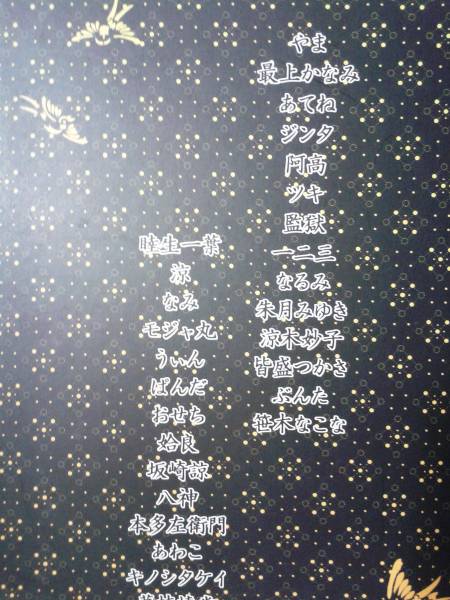 やま
最上かなみ
あてね
ジンタ
阿高
ツキ
監獄
一二三
なるみ
朱月みゆき
涼木妙子
皆盛つかさ
ぶんた
笹木なこな
睦生一葉
涼
なみ
モジャ丸
うぃん
ぱんだ
おせち
姶良
坂崎諒
八神
本多左衛門
あわこ
キノシタケイ